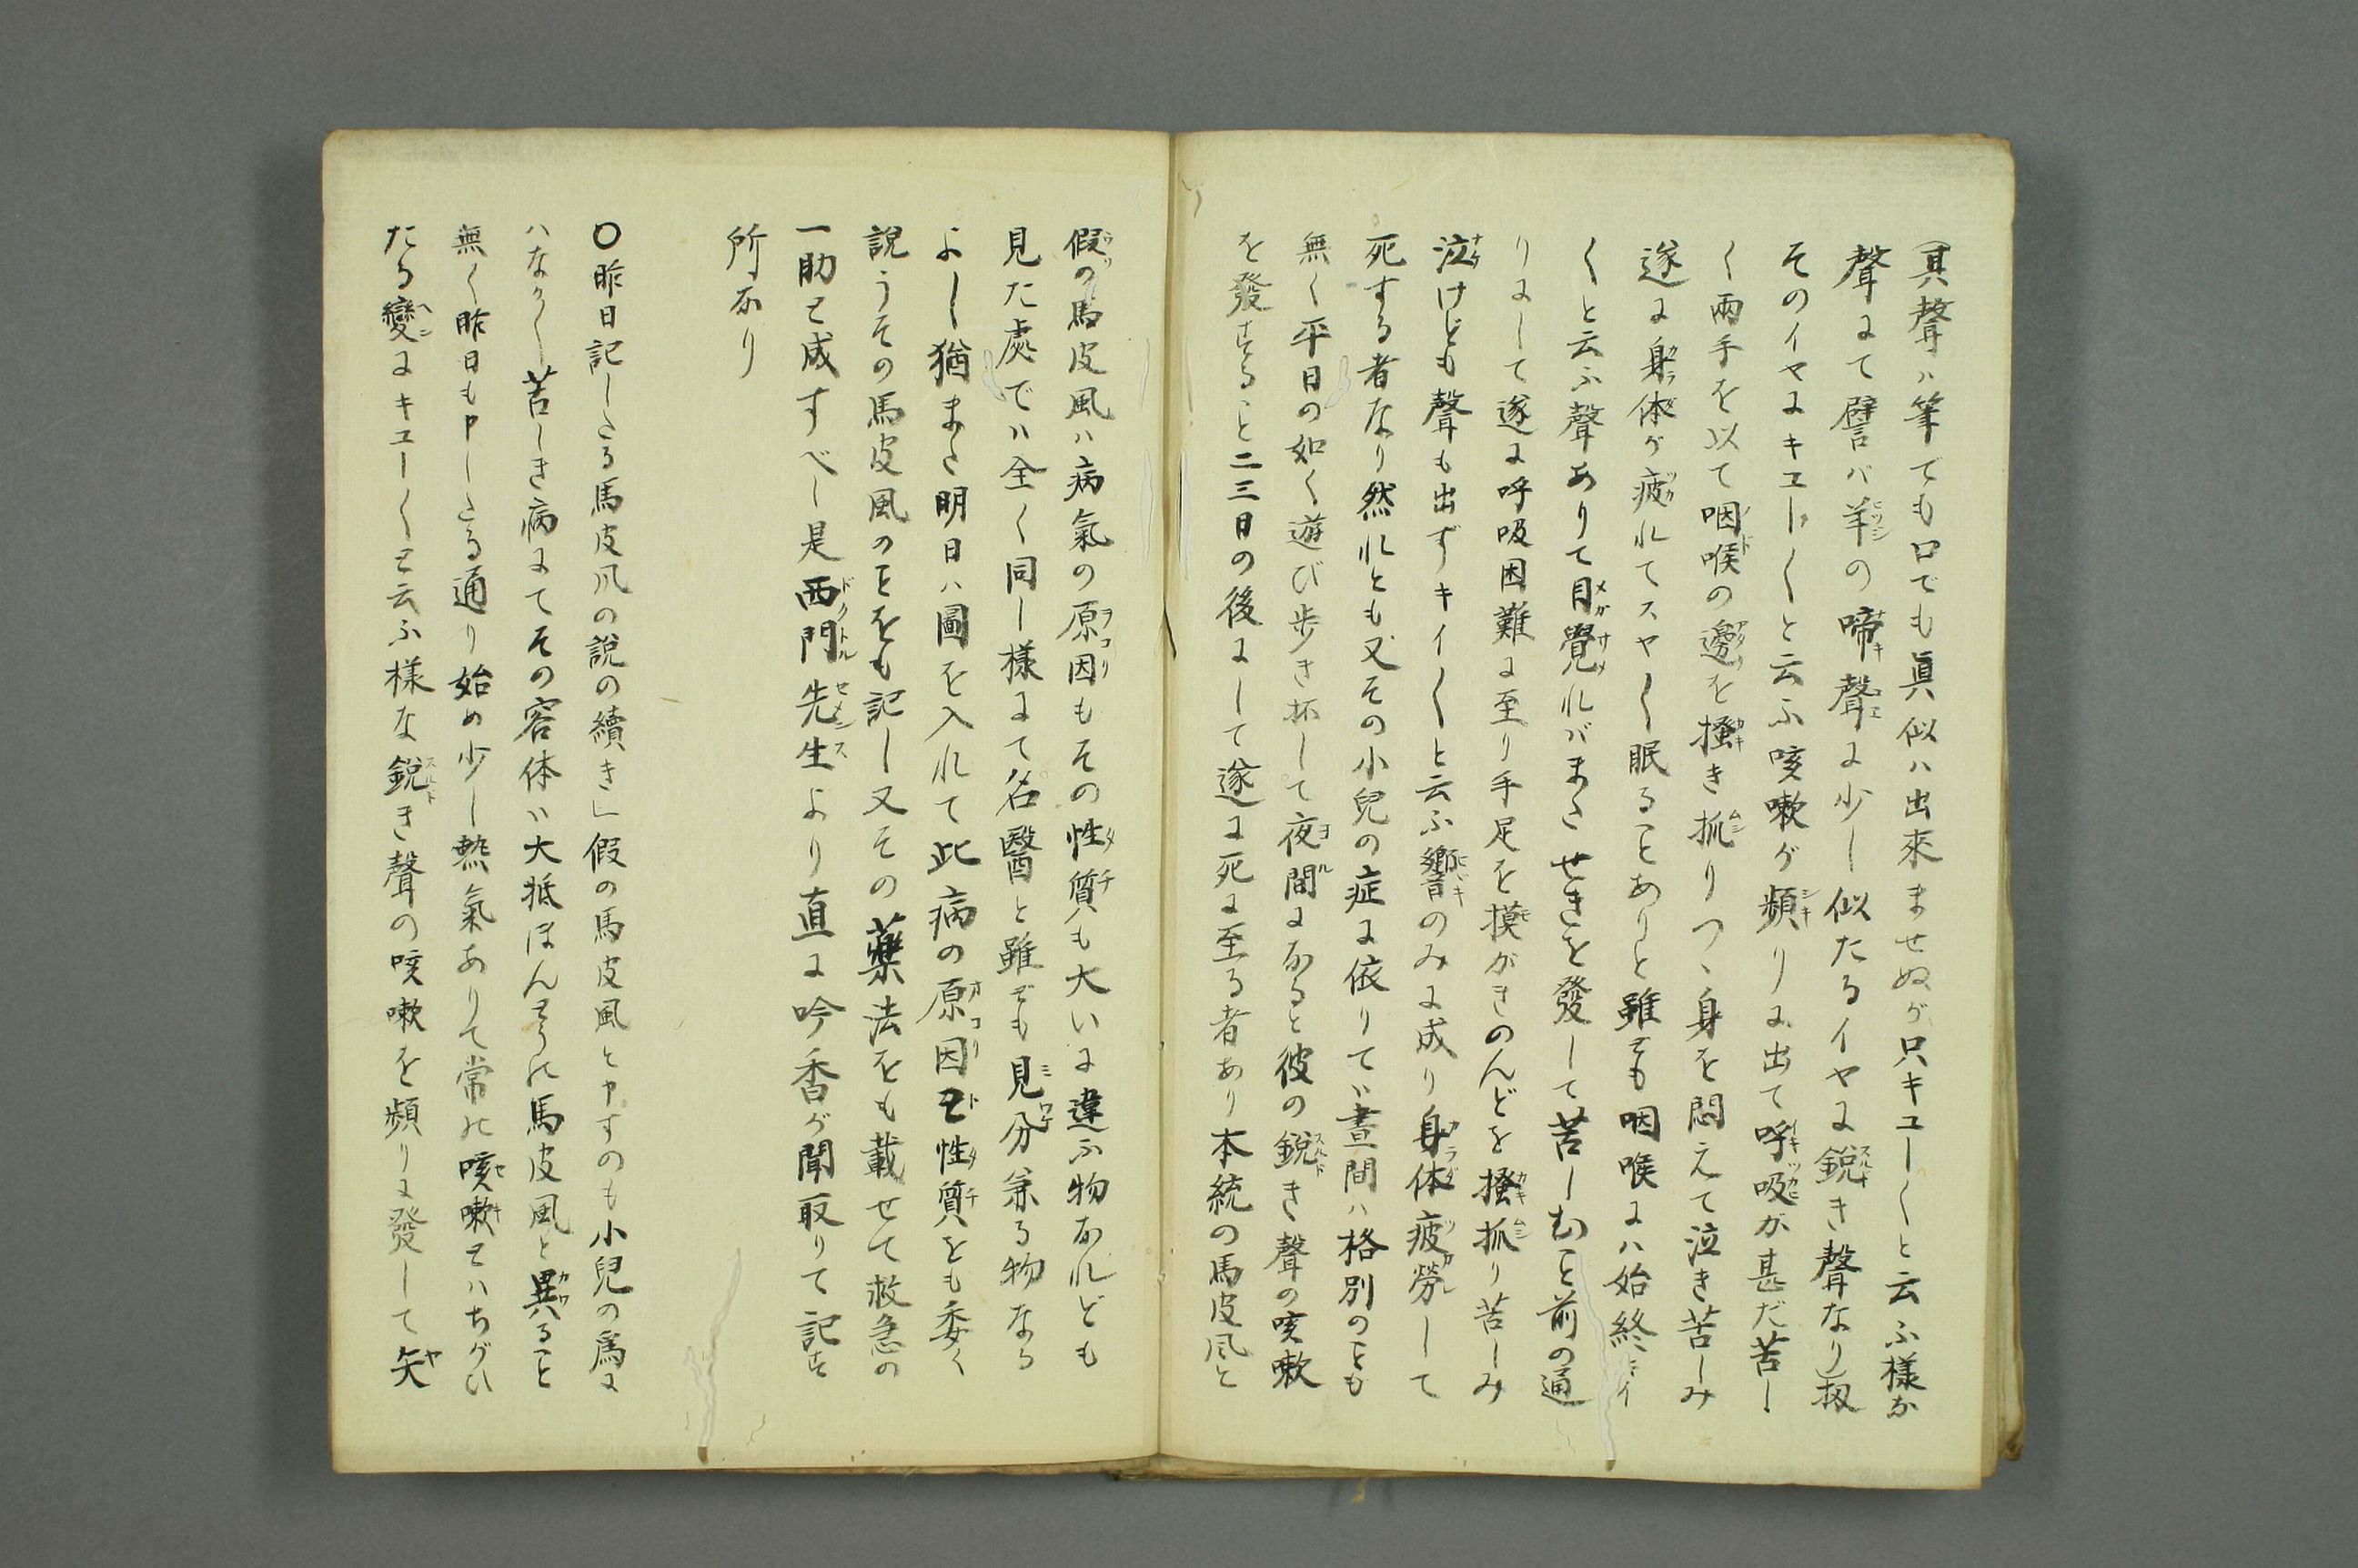 （其聲ハ筆でも口でも眞似ハ出來ませぬが只キユー〱と云ふ様な
聲にて譬バ羊の啼聲に少し似たるイヤに鋭き聲なり）扨
そのイヤにキユー〱と云ふ咳嗽が頻りに出て呼吸が甚だ苦し
く兩手を以て咽喉の邊を掻き抓りつゝ身を悶えて泣き苦しみ
遂に身体が疲れてスヤ〱眠ることありと雖ども咽喉にハ始終キイ
〱と云ふ聲ありて目覺れバまたせきを發して苦しむこと前の通
りにして遂に呼吸困難に至り手足を摸がきのんどを掻抓り苦しみ
泣けども聲も出ずキイ〱と云ふ響のみに成り身体疲勞して
死する者なり然れとも又その小兒の症に依りてハ晝間ハ格別のことも
無く平日の如く遊び歩き抔して夜間になると彼の鋭き聲の咳嗽
を發すること二三日の後にして遂に死に至る者あり本統の馬皮風と
假の馬皮風ハ病氣の原因もその性質も大いに違ふ物なれども
見た處でハ全く同し様にて名醫と雖ども見分兼る物なる
よし猶また明日ハ圖を入れて此病の原因と性質をも委く
説うその馬皮風のことをも記し又その藥法をも載せて救急の
一助と成すべし是西門先生より直に吟香が聞取りて記す
所なり
〇昨日記したる馬皮風の説の續き」假の馬皮風と申すのも小兒の爲に
ハなか〱苦しき病にてその容体ハ大抵ほんとうの馬皮風と異ること
無く昨日も申したる通り始め少し熱氣ありて常の咳嗽とハちがひ
たる變にキユー〱と云ふ様な鋭き聲の咳嗽を頻りに發して矢